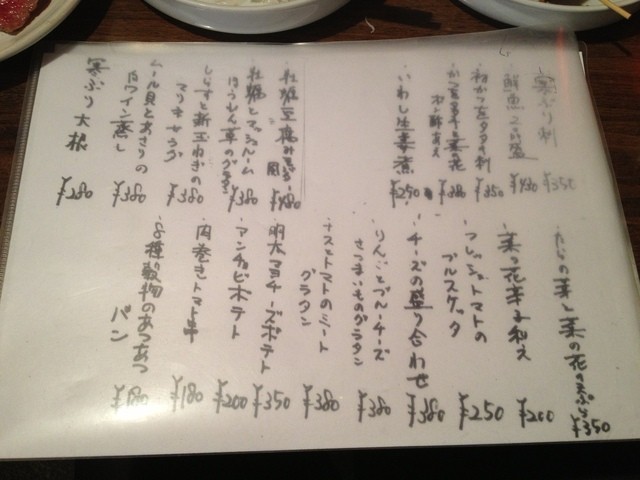 寒ぶり刺 ¥350
鮮魚2点盛 ¥480
初かつをタタキ刺 ¥350
かつを
ポン酢あえ ¥380
いわし生姜煮 ¥250
牡蠣豆腐 ¥480
牡蠣とマッシュルーム
ほうれん草のグラタン ¥380
しらすと新玉ねぎの
¥380
ムール貝とあさりの
白ワイン蒸し ¥380
寒ぶり大根 ¥280
たらの芽と菜の花の天ぷら ¥350
菜の花芽み和え ¥200
フレッシュトマトの
ブルスケッタ ¥250
チーズの盛り合わせ ¥380
りんごとブルーチーズ
さつまいものグラタン ¥380
ナスとトマトのミート
グラタン ¥380
明太マヨチーズポテト ¥350
アンチョビポテト ¥200
肉巻きトマト串 ¥180
8種の穀物のあつあつ
パン ¥180